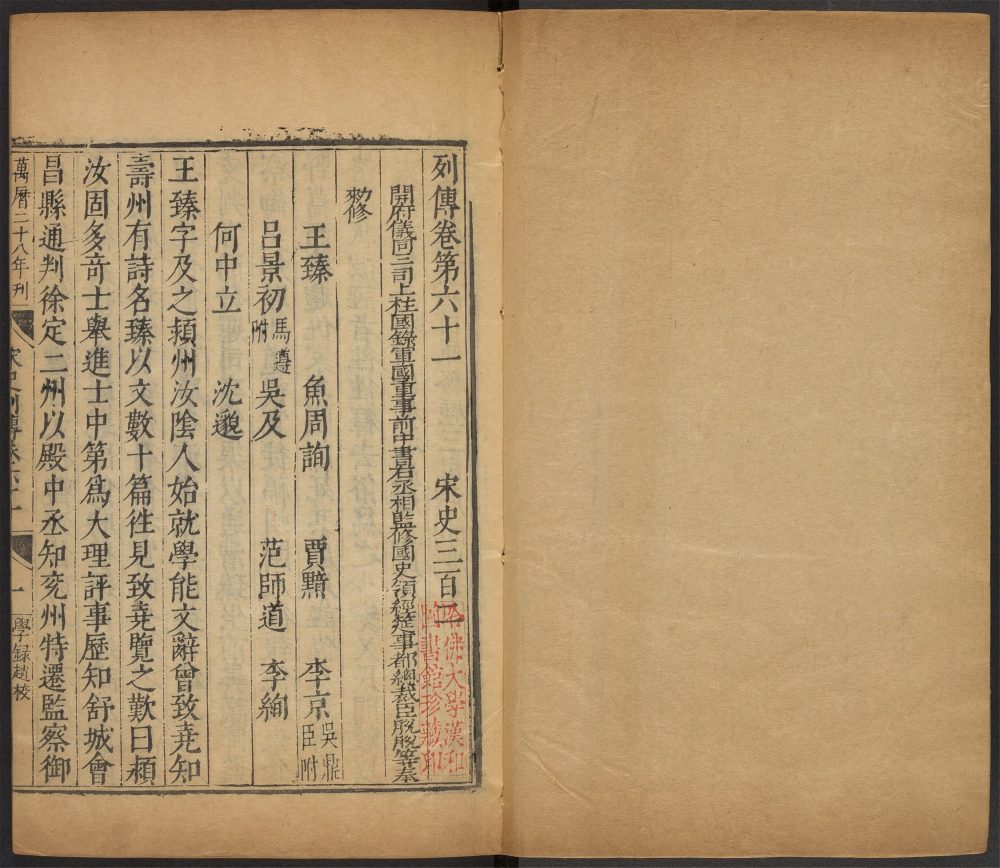 列傳卷第六十一 宋史三百二
開府儀同三司上柱國錄軍國重事前中書右丞相監修國史領經筵事都總裁臣脫脫等奉
勑修
王臻 魚周詢 賈黯 李京吳鼎臣附
呂景初馬遵附 吳及 范師道 李絢
何中立 沈邈
王臻字及之頴州汝陰人始就學能文辭曾致堯知
壽州有詩名臻以文數十篇徃見致堯覽之歎曰頴
汝固多竒士舉進士中第爲大理評事歷知舒城會
昌縣通判徐定二州以殿中丞知兖州特遷監察御
萬曆二十八年刊 宋史列傳卷六十一 一 學録趙校
哈佛大學漢和
圖書館珍藏印